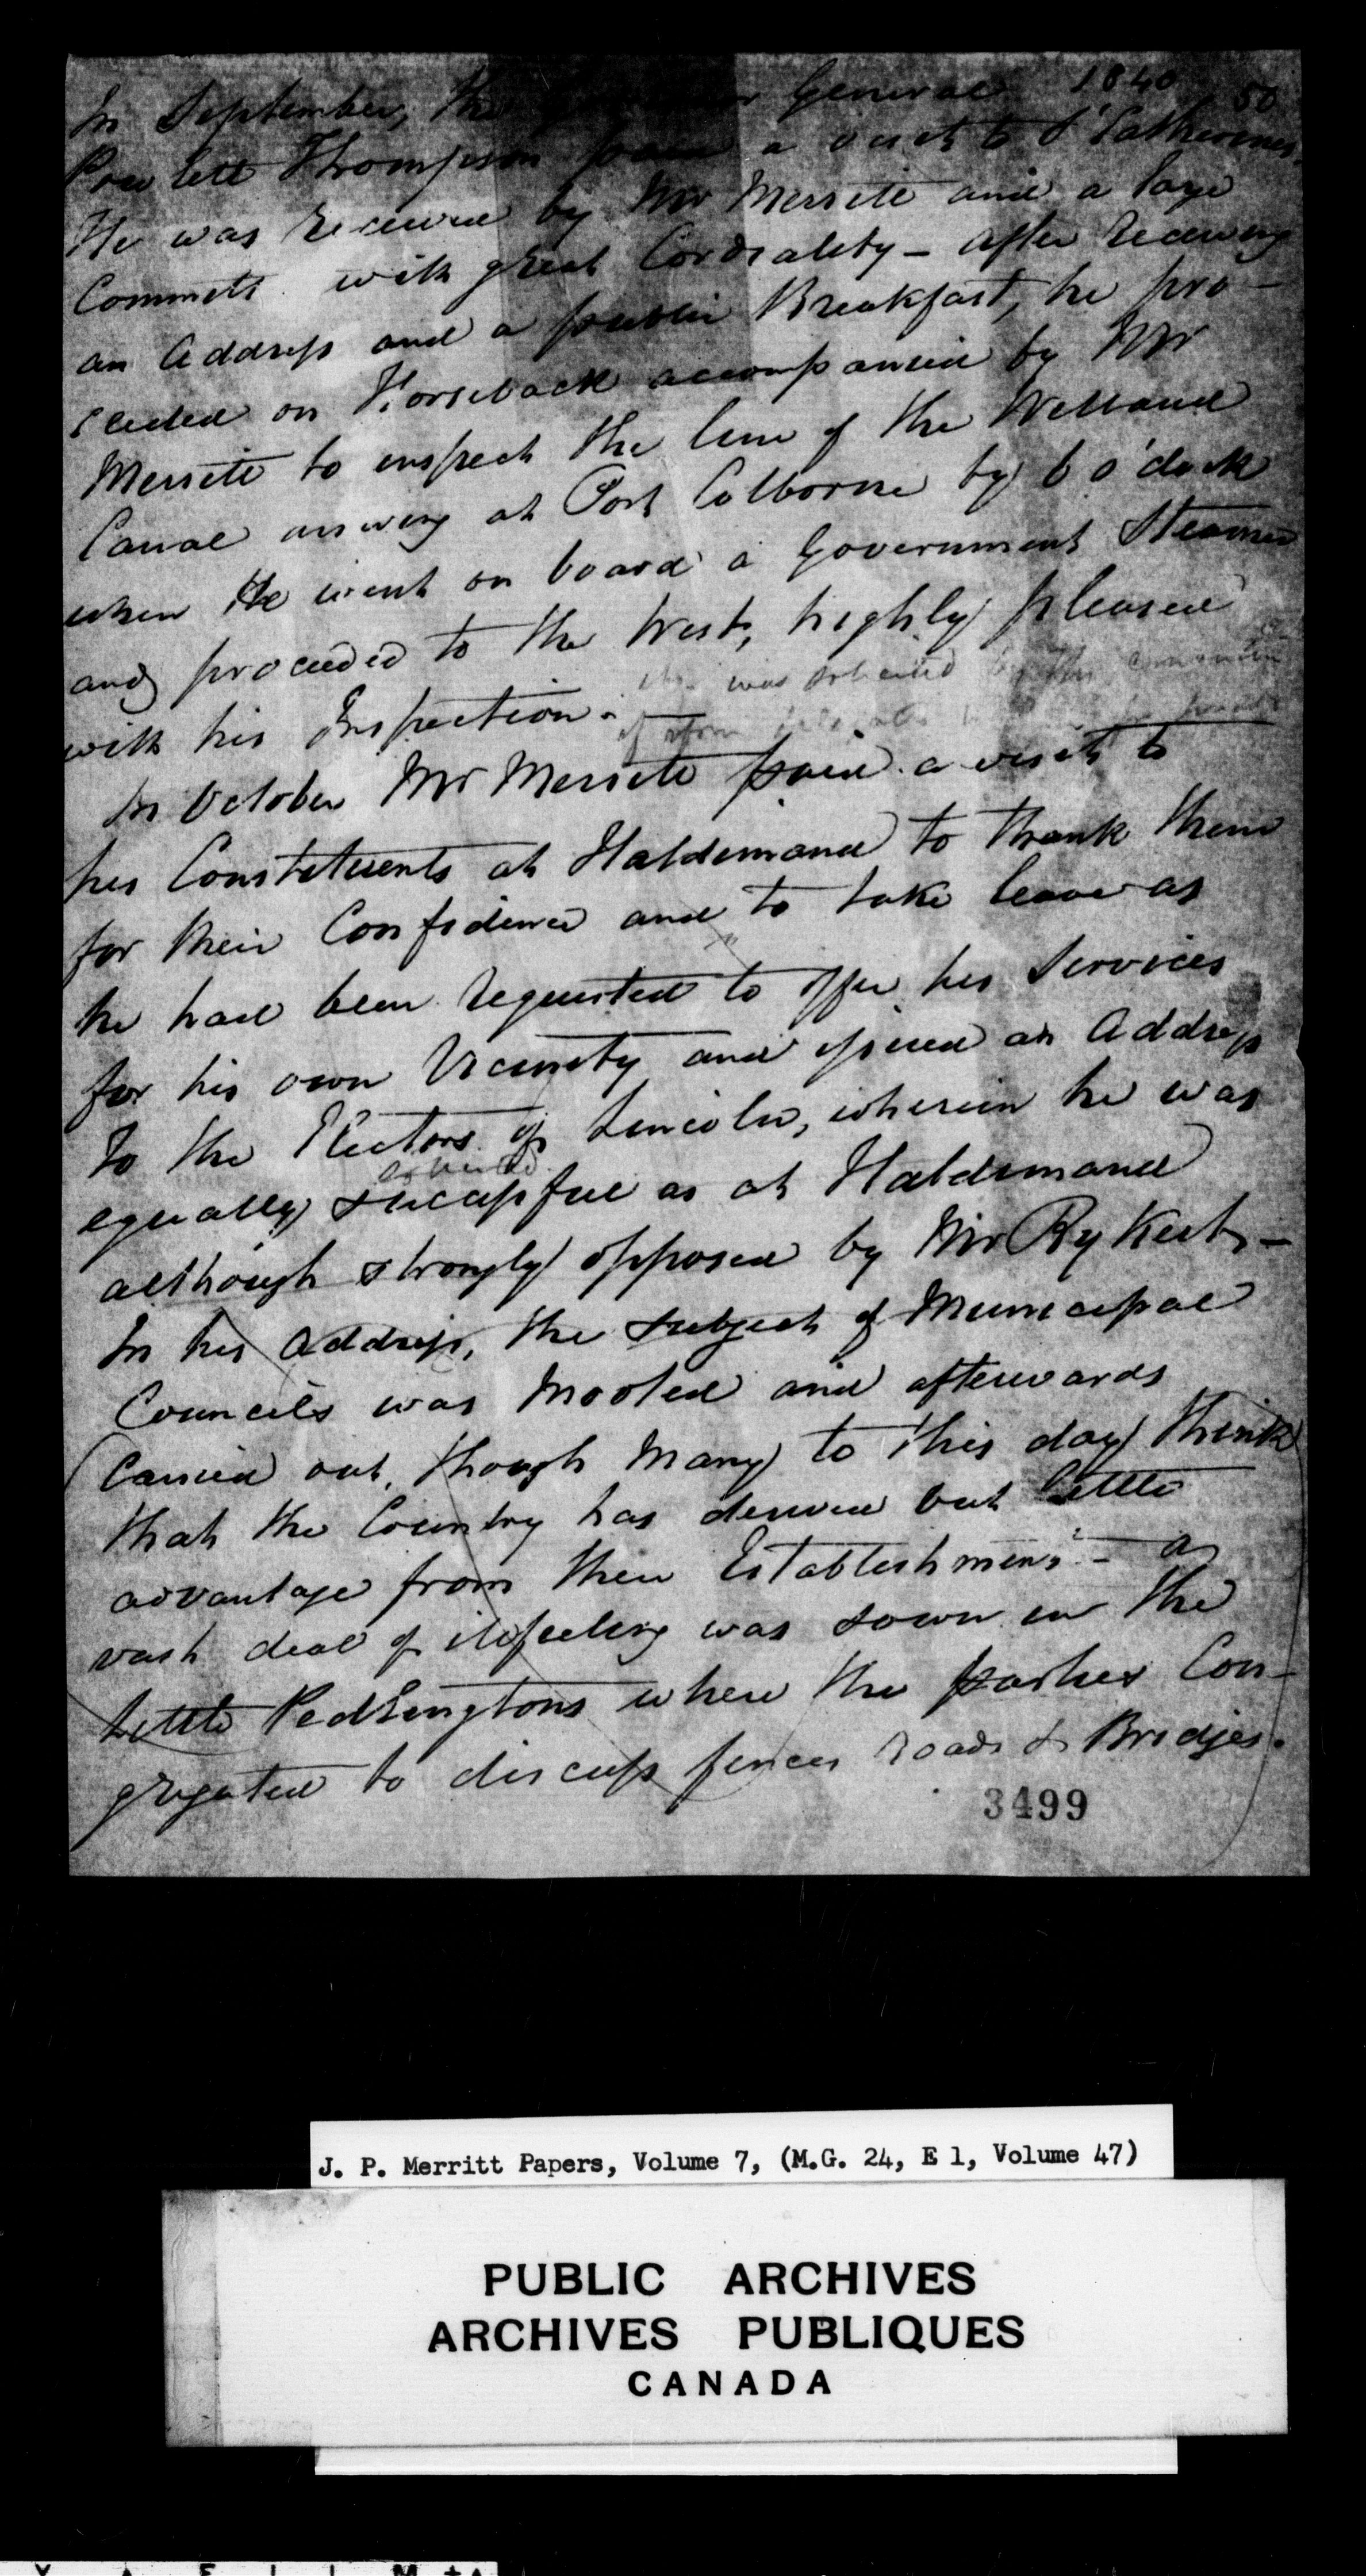 1840 50
In September, the Governor General
Poulett Thompson paid a visit to St Catherines.
He was received by Mr Merritt and a large
Committe with great Cordiality - After receiving
an Address and a public Breakfast, he pro-
ceeded on Horseback accompanied by Mr
Merritt to inspect the line of the Welland
Canal arriving at Port Colborne by 6 o'clock
when He went on board a Government Steamer
and proceeded to the West, highly pleased
with his Inspection. was by the
In October Mr Merritt paid a visit to
his Constituents at Haldimand to thank them
for their Confidence and to take leave as
he had been requested to offer his Services
for his own Vicinity and issued an Address
To the Electors of Lincoln, wherein he was
equally successful as at Haldimand
although strongly opposed by Mr Rykert -
In his Address, the subject of Municipal
Councils was Mooted and afterwards
Carried out, though Many to this day think
that the Country has derived but little
advantage from their Establishment - a
vast deal of illfeeling was sown in the
Little Pedlingtons where the parties Con-
gregated to discuss fences roads & Bridges.
3499
J. P. Merritt Papers, Volume 7, (M.G. 24, E 1, Volume 47)
PUBLIC ARCHIVES
ARCHIVES PUBLIQUES
CANADA